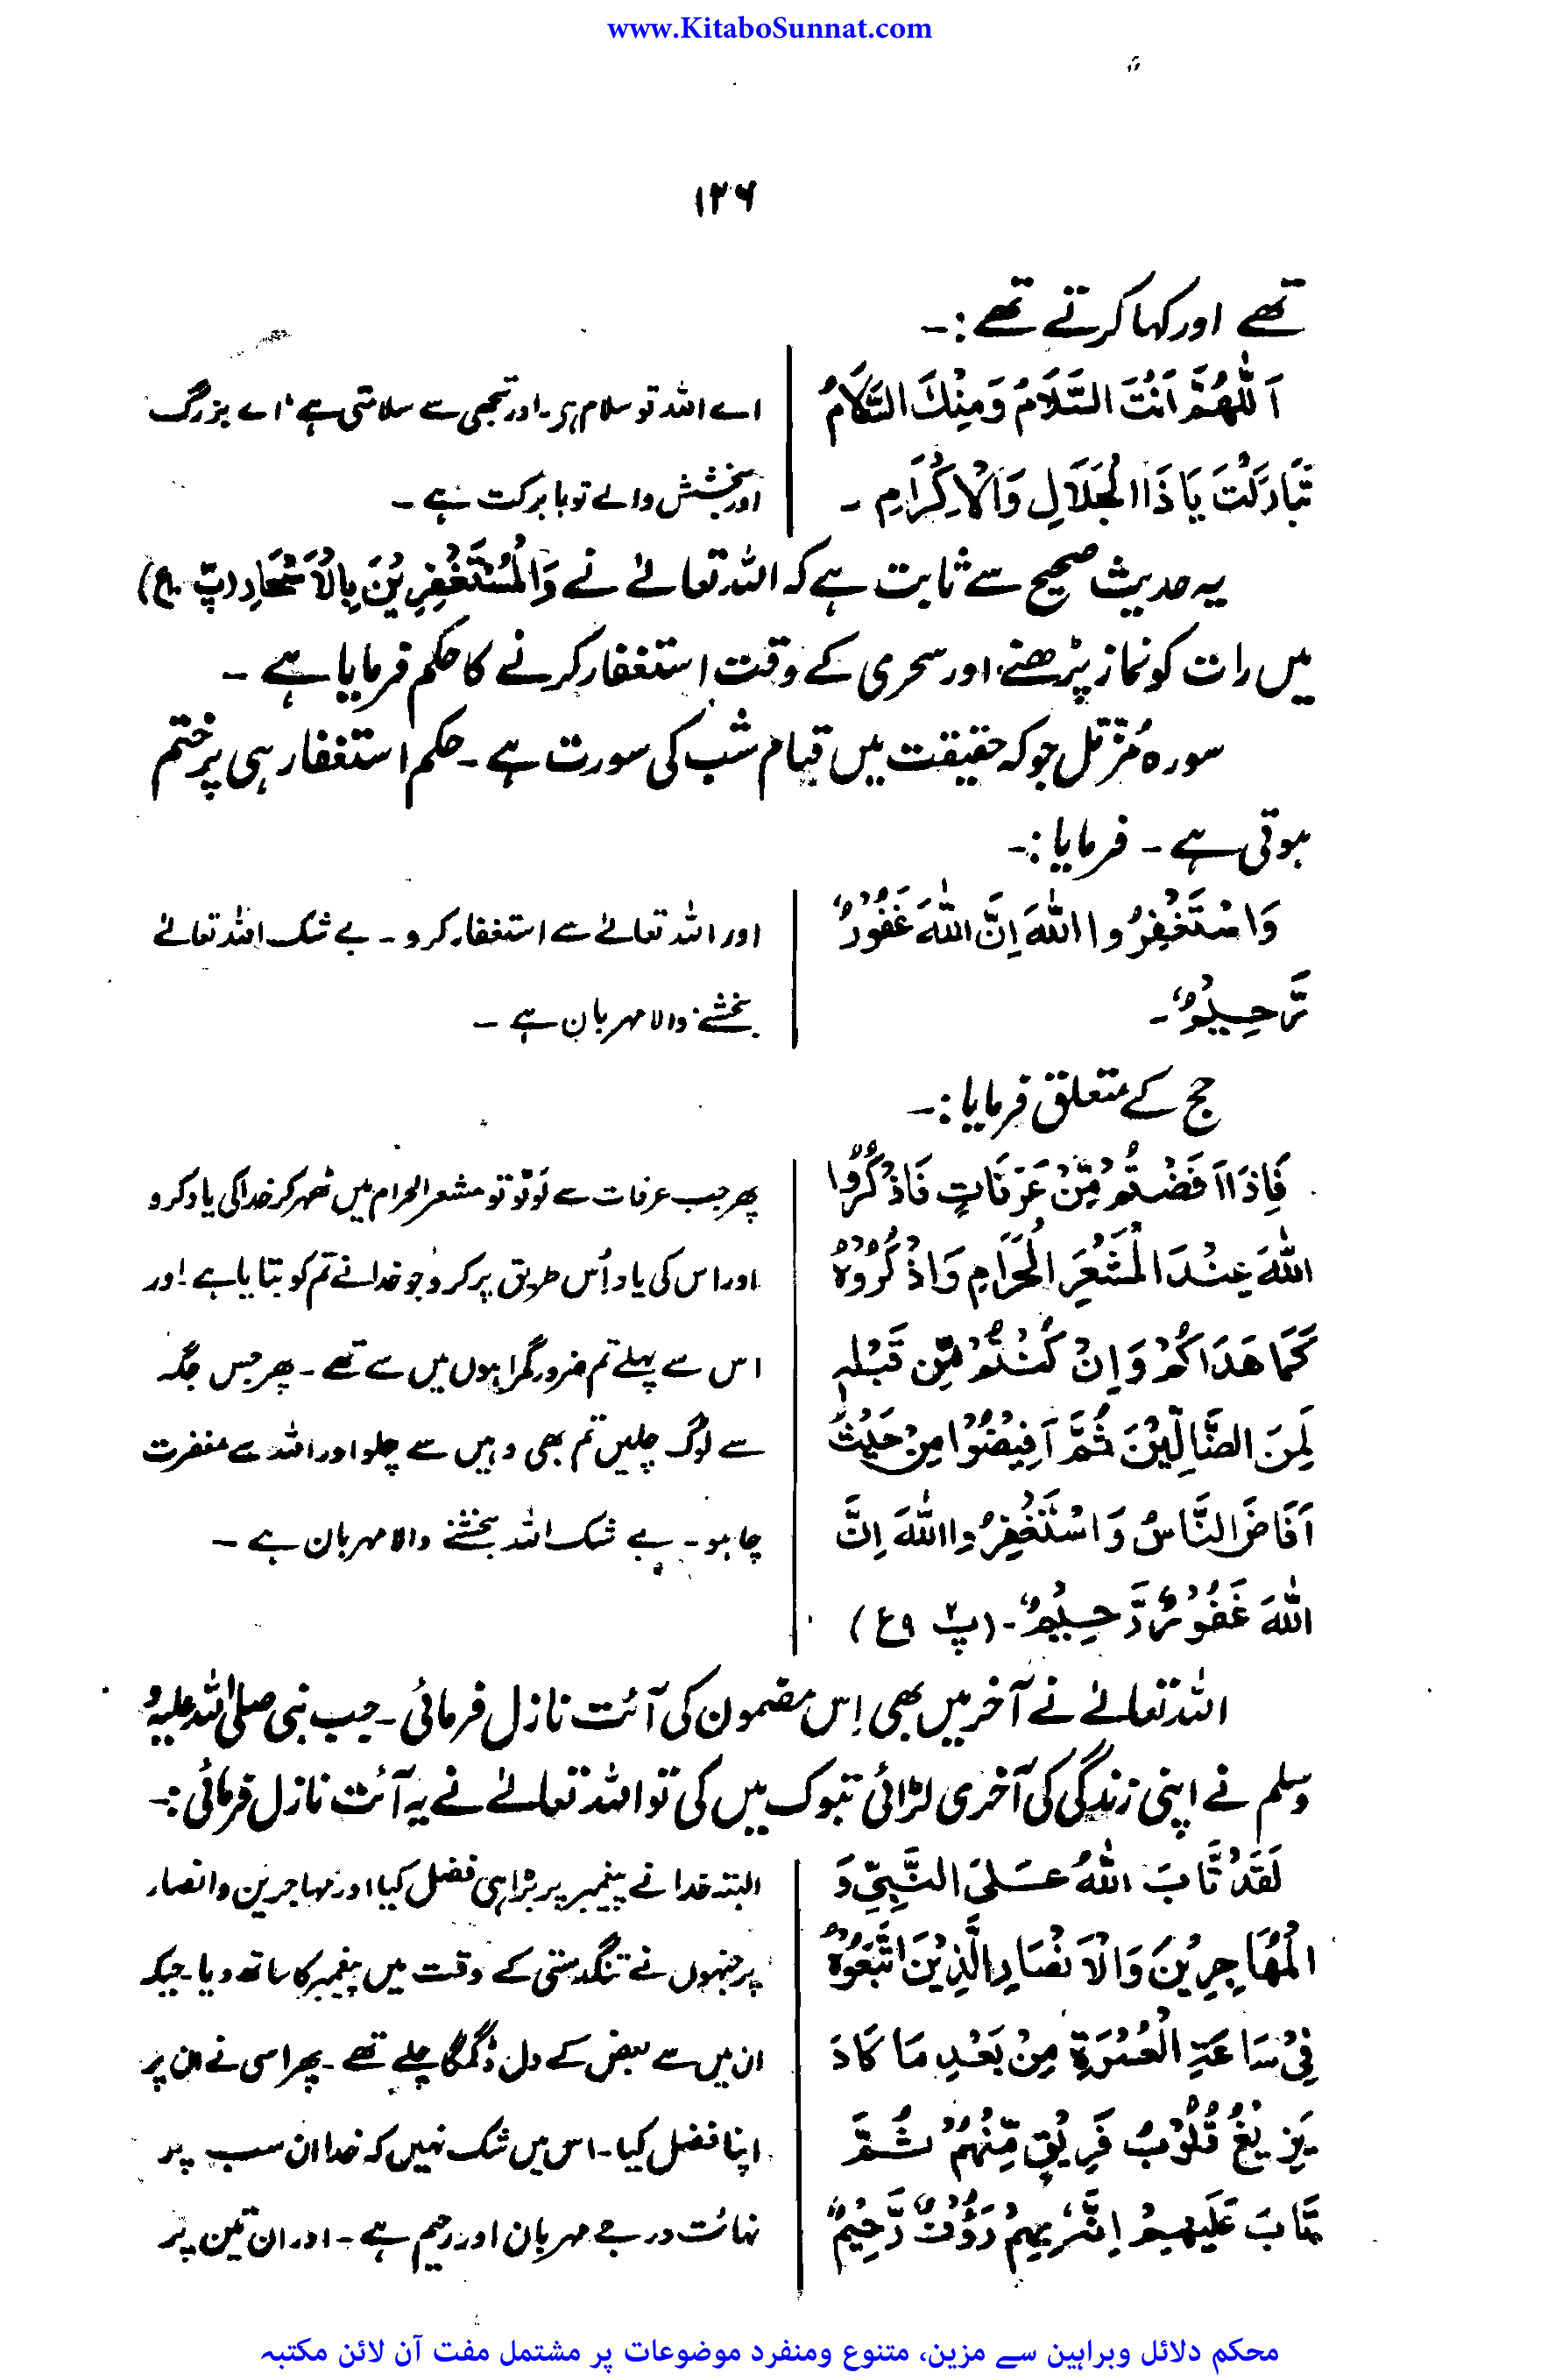 www.KitaboSunnat.com
۱۲۶
تھے اور کہا کرتے تھے :-
اَللّٰهُمَّ اَنْتَ السَّلَامُ وَمِنْكَ السَّلَامُ
تَبَارَكْتَ يَا ذَا الْجَلَالِ وَالْاِكْرَامِ ـ
اے اللہ تو سلام ہے۔ اور تجھی سے سلامتی ہے، اے بزرگ
اور بخشش والے تو بابرکت ہے ۔
یہ حدیث صحیح سے ثابت ہے کہ اللہ تعالےٰ نے وَالْمُسْتَغْفِرِيْنَ بِالْاَسْحَارِ (پ ۳ ع۱۰)
میں رات کو نماز پڑھنے اور سحری کے وقت استغفار کرنے کا حکم فرمایا ہے ۔
سورہ مُزّمّل جو کہ حقیقت میں قیام شب کی سورت ہے ۔ حکم استغفار ہی پر ختم
ہوتی ہے ۔ فرمایا :-
وَاسْتَغْفِرُوا اللّٰهَ اِنَّ اللّٰهَ غَفُوْرٌ
رَّحِيْمٌ ـ
اور اللہ تعالےٰ سے استغفار کرو ۔ بے شک اللہ تعالےٰ
بخشنے والا مہربان ہے ۔
حج کے متعلق فرمایا :-
فَاِذَا اَفَضْتُمْ مِّنْ عَرَفَاتٍ فَاذْكُرُوا
اللّٰهَ عِنْدَ الْمَشْعَرِ الْحَرَامِ وَاذْكُرُوْهُ
كَمَا هَدَاكُمْ وَاِنْ كُنْتُمْ مِّنْ قَبْلِهٖ
لَمِنَ الضَّالِّيْنَ ثُمَّ اَفِيْضُوْا مِنْ حَيْثُ
اَفَاضَ النَّاسُ وَاسْتَغْفِرُوا اللّٰهَ اِنَّ
اللّٰهَ غَفُوْرٌ رَّحِيْمٌ ـ (پ ۲ ۹ع)
پھر جب عرفات سے لوٹو تو مشعر الحرام میں ٹھہر کر خدا کی یاد کرو
اور اس کی یاد اُس طریق پر کرو جو خدا نے تم کو بتایا ہے اور
اس سے پہلے تم ضرور گمراہوں میں سے تھے ۔ پھر جس جگہ
سے لوگ چلیں تم بھی وہیں سے چلو اور اللہ سے مغفرت
چاہو ۔ بے شک اللہ بخشنے والا مہربان ہے ۔
اللہ تعالےٰ نے آخر میں بھی اِس مضمون کی آئت نازل فرمائی ۔ جب نبی صلی اللہ علیہ و
وسلم نے اپنی زندگی کی آخری لڑائی تبوک میں کی تو اللہ تعالےٰ نے یہ آئت نازل فرمائی :-
لَقَدْ تَّابَ اللّٰهُ عَلَى النَّبِيِّ وَ
الْمُهَاجِرِيْنَ وَالْاَنْصَارِ الَّذِيْنَ اتَّبَعُوْهُ
فِيْ سَاعَةِ الْعُسْرَةِ مِنْ بَعْدِ مَا كَادَ
يَزِيْغُ قُلُوْبُ فَرِيْقٍ مِّنْهُمْ ثُمَّ
تَابَ عَلَيْهِمْ اِنَّهٗ بِهِمْ رَءُوْفٌ رَّحِيْمٌ
البتہ خدا نے پیغمبر پر بڑا ہی فضل کیا اور مہاجرین و انصار
پر جنہوں نے تنگدستی کے وقت میں پیغمبر کا ساتھ دیا۔ جبکہ
ان میں سے بعض کے دل ڈگمگا چلے تھے ۔ پھر اسی نے ان پر
اپنا فضل کیا ۔ اس میں شک نہیں کہ خدا ان سب پر
نہائت درجے مہربان اور رحیم ہے ۔ اور ان تین پر
محکم دلائل وبراہین سے مزین، متنوع ومنفرد موضوعات پر مشتمل مفت آن لائن مکتبہ